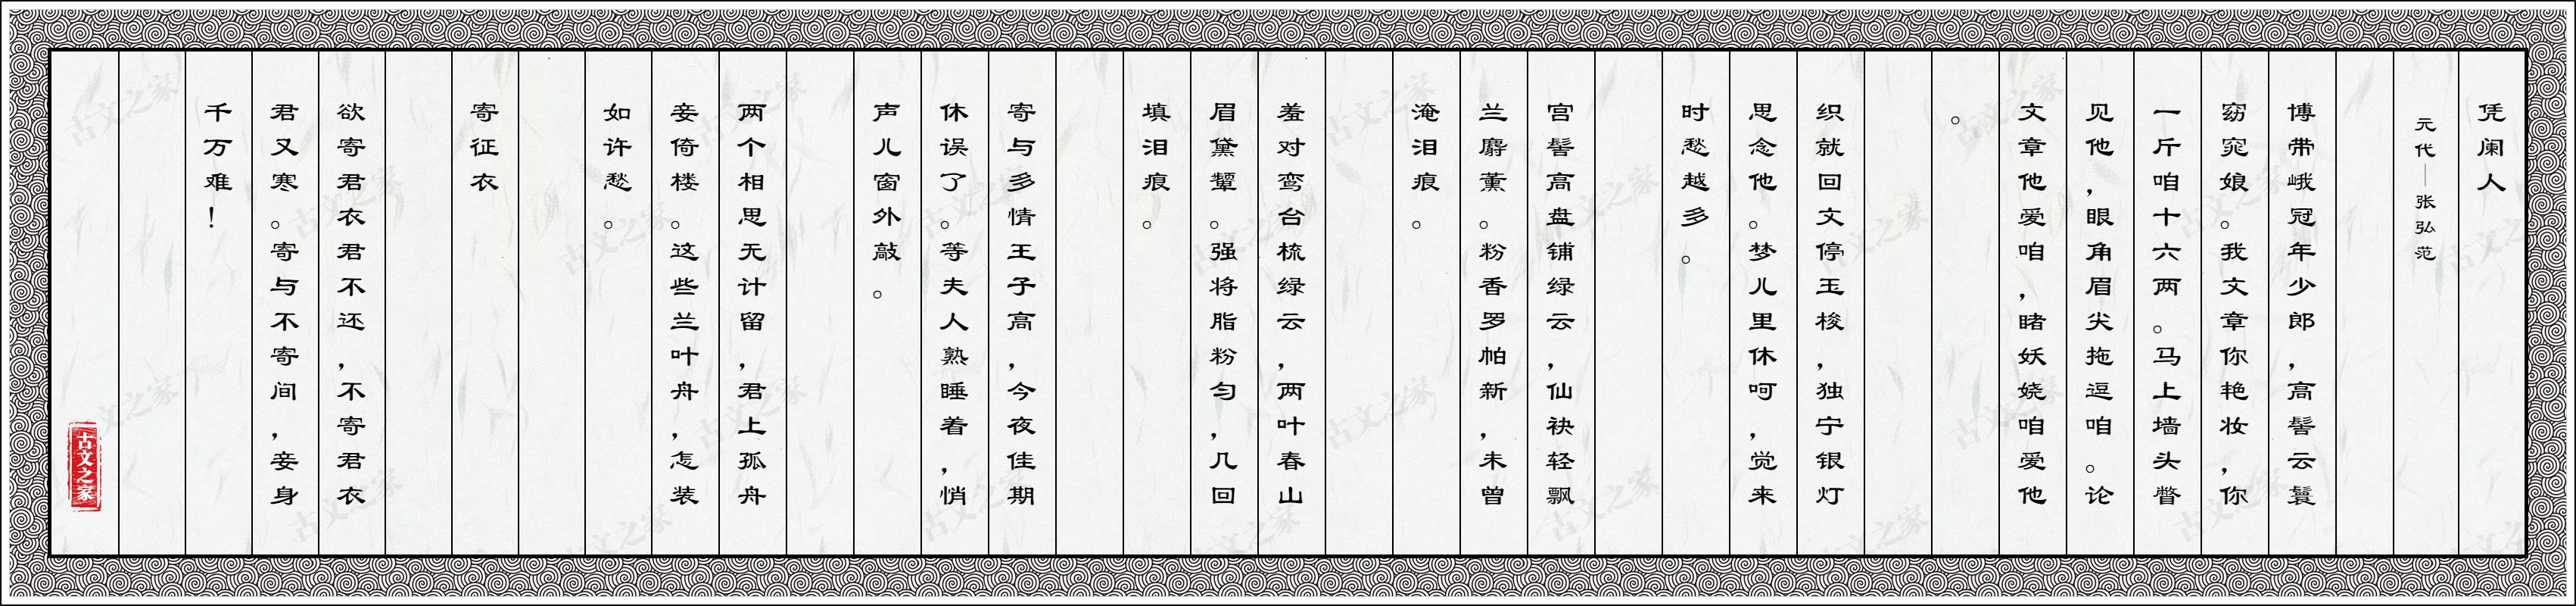 凭阑人
元代—张弘范
博带峨冠年少郎，高髻云鬟
窈窕娘。我文章你艳妆，你
一斤咱十六两。马上墙头瞥
见他，眼角眉尖拖逗咱。论
文章他爱咱，睹妖娆咱爱他
。
织就回文停玉梭，独宁银灯
思念他。梦儿里休呵，觉来
时愁越多。
宫髻高盘铺绿云，仙袂轻飘
兰麝薰。粉香罗帕新，未曾
淹泪痕。
羞对鸾台梳绿云，两叶春山
眉黛颦。强将脂粉匀，几回
填泪痕。
寄与多情王子高，今夜佳期
休误了。等夫人熟睡着，悄
声儿窗外敲。
两个相思无计留，君上孤舟
妾倚楼。这些兰叶舟，怎装
如许愁。
寄征衣
欲寄君衣君不还，不寄君衣
君又寒。寄与不寄间，妾身
千万难！
古文之家